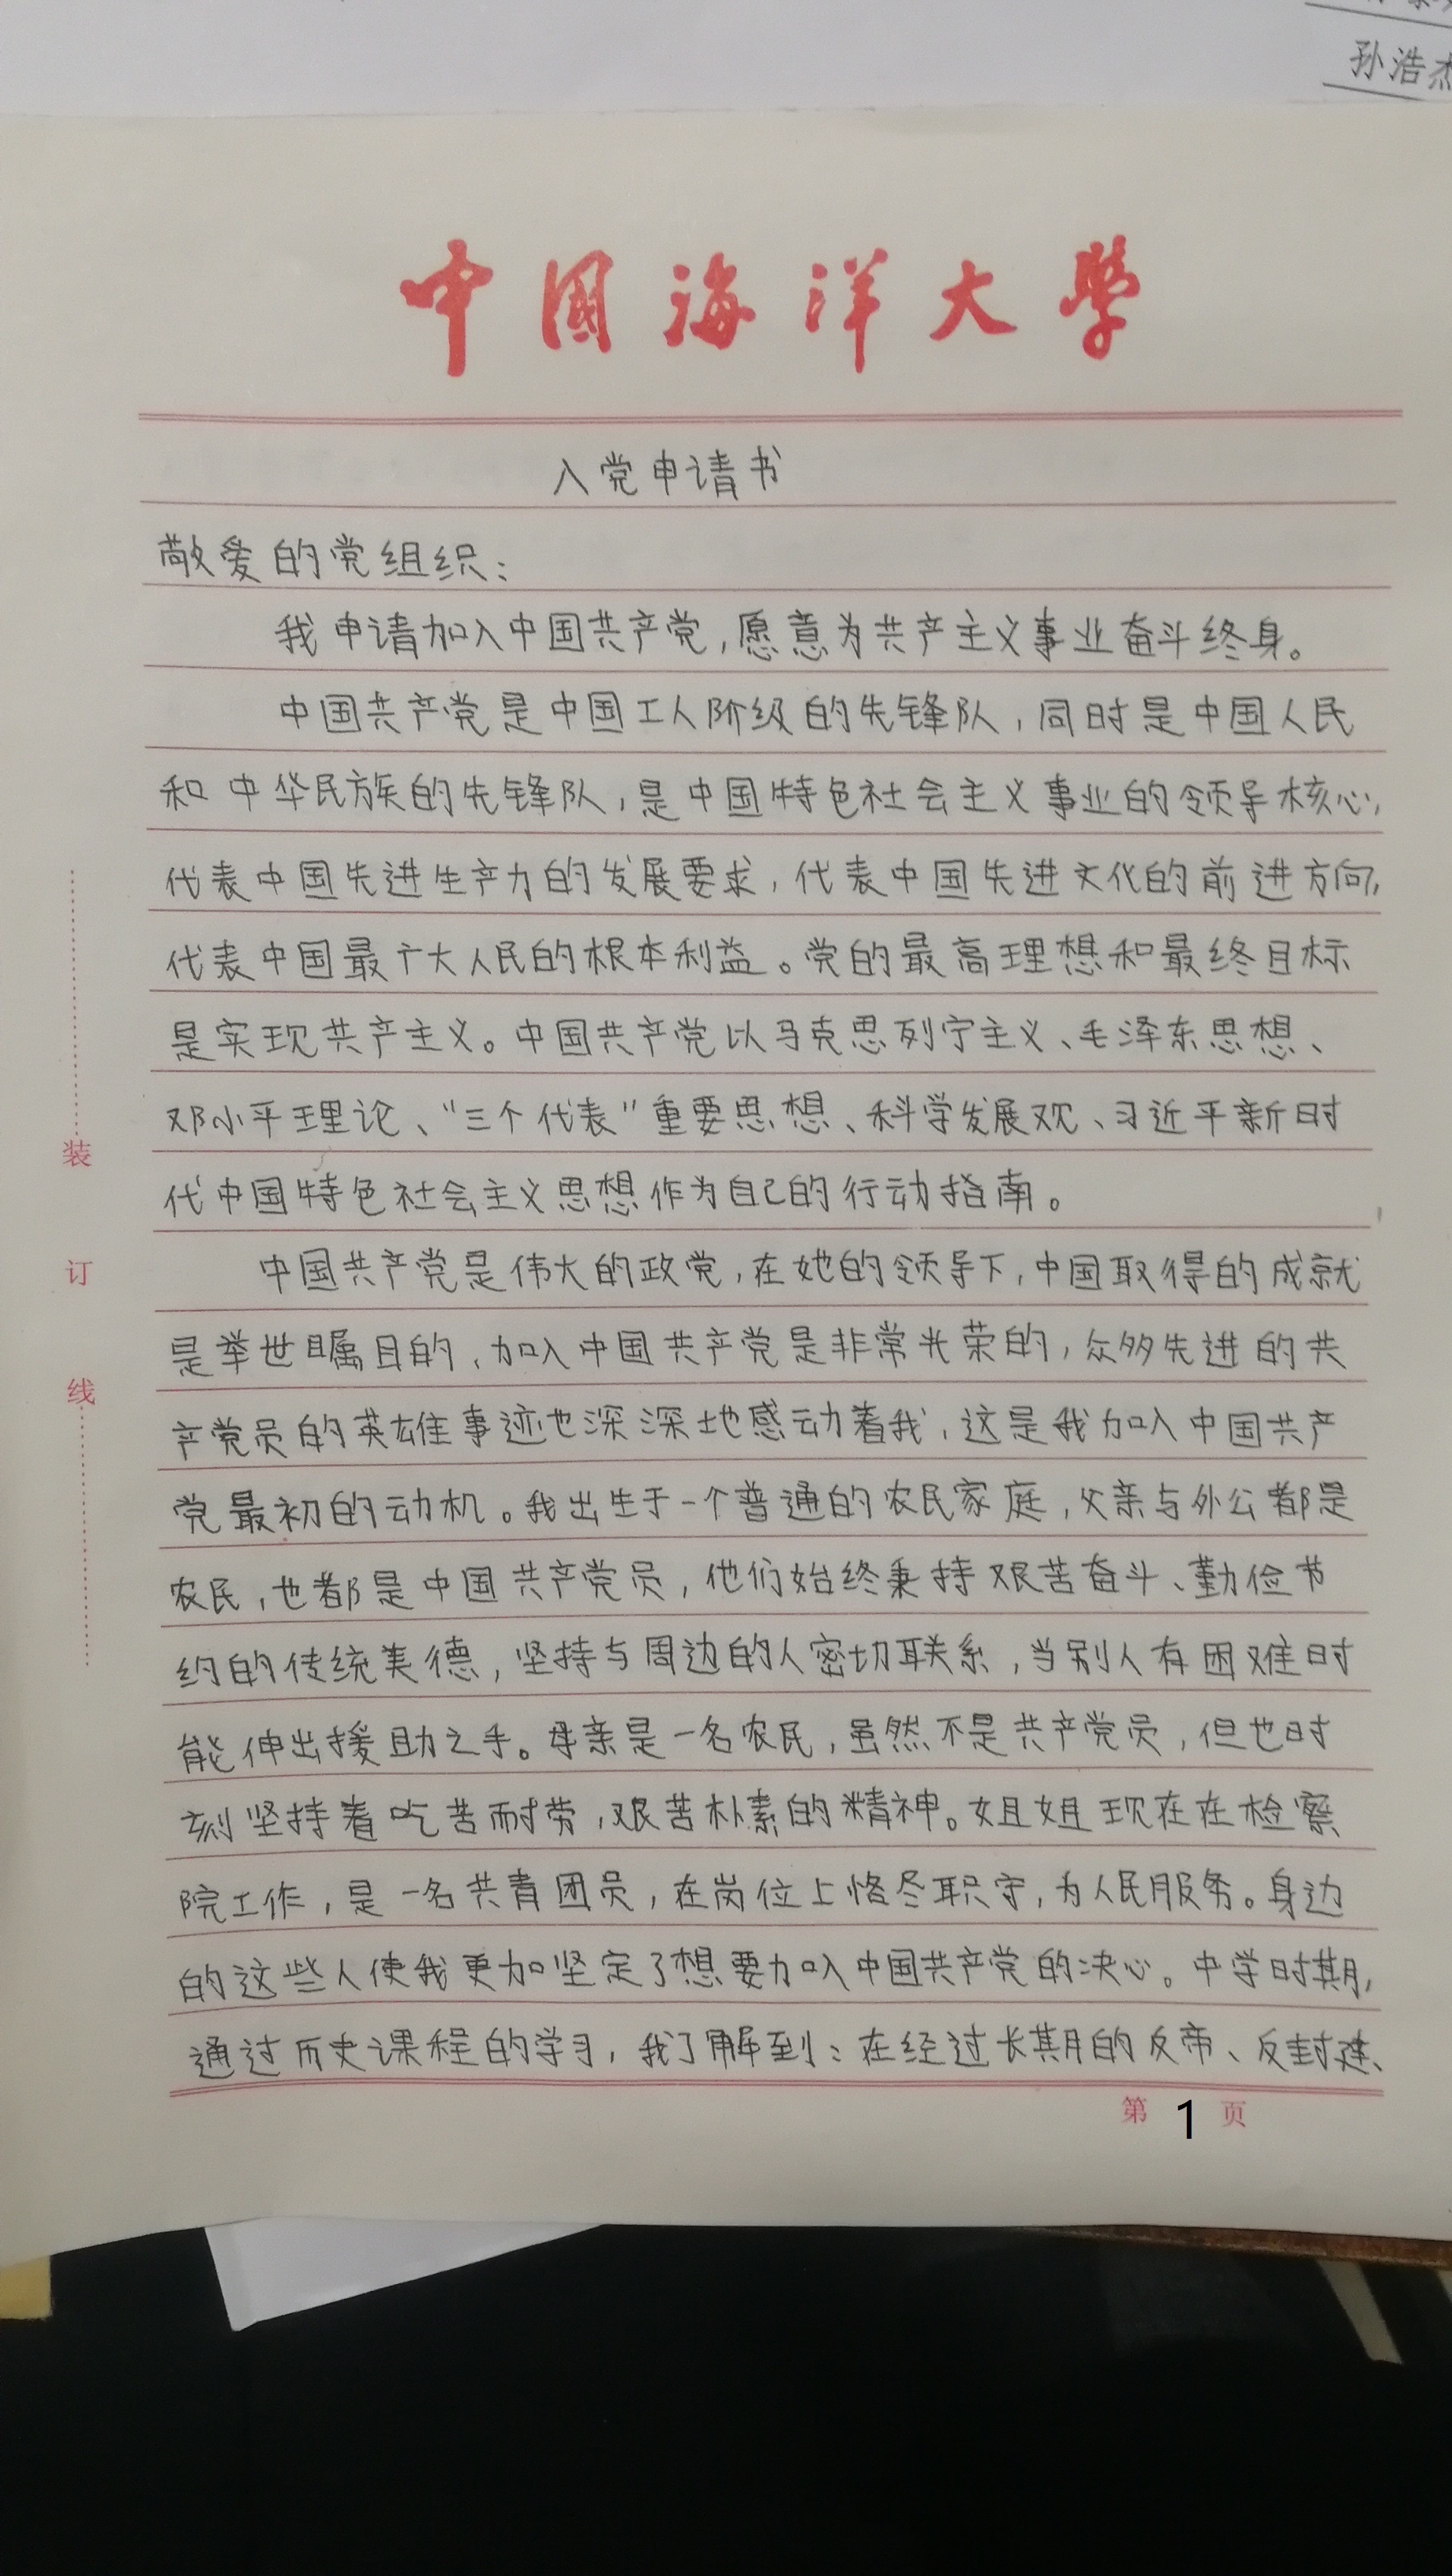 孙浩杰
中国海洋大学
入党申请书
敬爱的党组织：
我申请加入中国共产党，愿意为共产主义事业奋斗终身。
中国共产党是中国工人阶级的先锋队，同时是中国人民
和中华民族的先锋队，是中国特色社会主义事业的领导核心，
代表中国先进生产力的发展要求，代表中国先进文化的前进方向，
代表中国最广大人民的根本利益。党的最高理想和最终目标
是实现共产主义。中国共产党以马克思列宁主义、毛泽东思想、
邓小平理论、“三个代表”重要思想、科学发展观、习近平新时
代中国特色社会主义思想作为自己的行动指南。
中国共产党是伟大的政党，在她的领导下，中国取得的成就
是举世瞩目的，加入中国共产党是非常光荣的，众多先进的共
产党员的英雄事迹也深深地感动着我，这是我加入中国共产
党最初的动机。我出生于一个普通的农民家庭，父亲与外公都是
农民，也都是中国共产党员，他们始终秉持艰苦奋斗、勤俭节
约的传统美德，坚持与周边的人密切联系，当别人有困难时
能伸出援助之手。母亲是一名农民，虽然不是共产党员，但也时
刻坚持着吃苦耐劳，艰苦朴素的精神。姐姐现在在检察
院工作，是一名共青团员，在岗位上恪尽职守，为人民服务。身边
的这些人使我更加坚定了想要加入中国共产党的决心。中学时期，
通过历史课程的学习，我了解到：在经过长期的反帝、反封建、
装
订
线
第 1 页